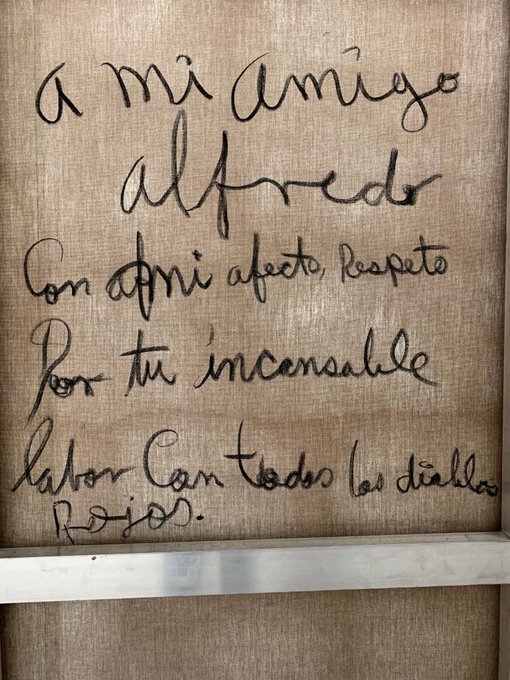 a mi amigo
alfredo
Con mi afecto, Respeto
Por tu incansable
labor Con todos los diablos
Rojos.